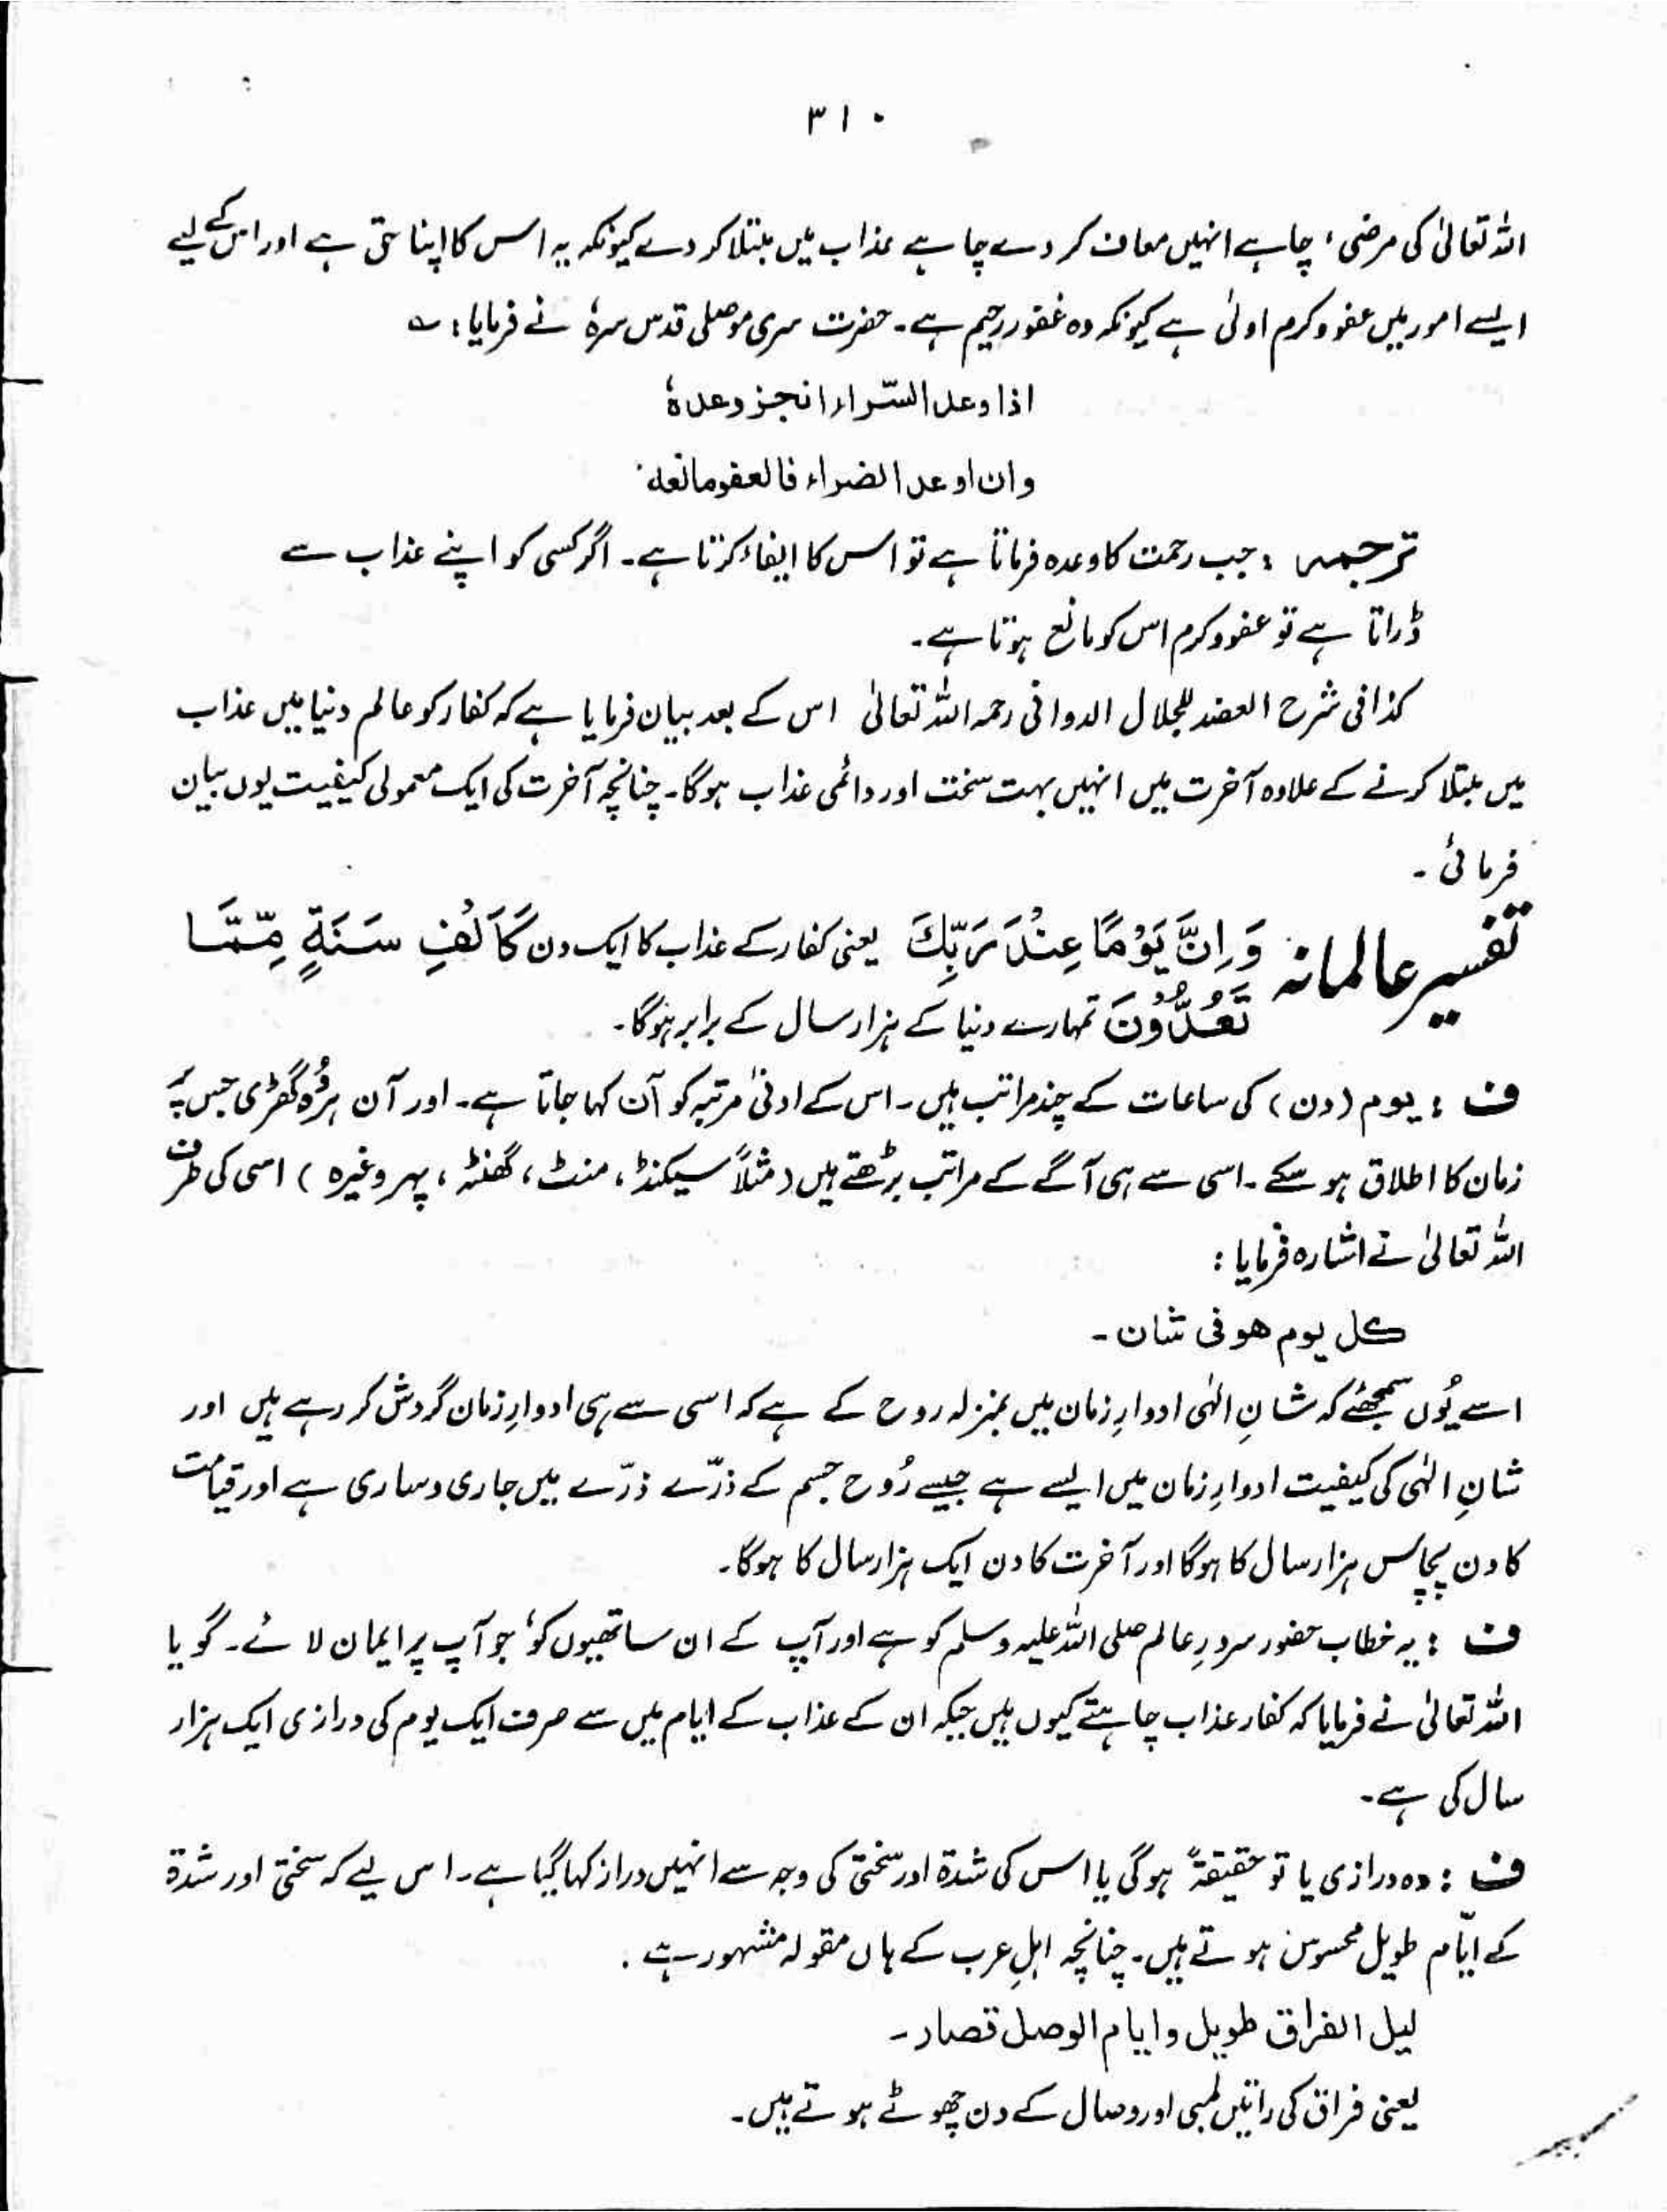 ۳۱۰
اللہ تعالیٰ کی مرضی، چاہے انہیں معاف کر دے چاہے عذاب میں مبتلا کر دے کیونکہ یہ اس کا اپنا حق ہے اور اس کے لیے
ایسے امور میں عفو و کرم اولیٰ ہے کیونکہ وہ غفور رحیم ہے۔ حضرت سری موصلی قدس سرہٗ نے فرمایا: ؎
اذا وعد السّراء انجز وعدہٗ
وان اوعد الضراء فالعفو مانعہ
ترجمہ : جب رحمت کا وعدہ فرماتا ہے تو اس کا ایفاء کرتا ہے۔ اگر کسی کو اپنے عذاب سے
ڈراتا ہے تو عفو و کرم اس کو مانع ہوتا ہے۔
کذا فی شرح العضد للجلال الدوانی رحمہ اللہ تعالیٰ اس کے بعد بیان فرمایا ہے کہ کفار کو عالم دنیا میں عذاب
میں مبتلا کرنے کے علاوہ آخرت میں انہیں بہت سخت اور دائمی عذاب ہوگا۔ چنانچہ آخرت کی ایک معمولی کیفیت یوں بیان
فرمائی۔
تفسیر عالمانہ وَ اِنَّ يَوْمًا عِنْدَ رَبِّكَ یعنی کفار کے عذاب کا ایک دن كَاَلْفِ سَنَةٍ مِّمَّا
تَعُدُّوْنَ تمہارے دنیا کے ہزار سال کے برابر ہوگا۔
ف : یوم (دن) کی ساعات کے چند مراتب ہیں۔ اس کے ادنیٰ مرتبہ کو آن کہا جاتا ہے۔ اور آن ہر وُہ گھڑی جس پر
زمان کا اطلاق ہو سکے۔ اسی سے ہی آگے کے مراتب بڑھتے ہیں (مثلاً سیکنڈ، منٹ، گھنٹہ، پہر وغیرہ) اسی کی طرف
اللہ تعالیٰ نے اشارہ فرمایا :
کل یوم ھو فی شان۔
اسے یُوں سمجھئے کہ شانِ الٰہی ادوارِ زمان میں بمنزلہ روح کے ہے کہ اسی سے ہی ادوارِ زمان گردش کر رہے ہیں اور
شانِ الٰہی کی کیفیت ادوارِ زمان میں ایسے ہے جیسے رُوح جسم کے ذرّے ذرّے میں جاری و ساری ہے اور قیامت
کا دن پچاس ہزار سال کا ہوگا اور آخرت کا دن ایک ہزار سال کا ہوگا۔
ف : یہ خطاب حضور سرورِ عالم صلی اللہ علیہ وسلم کو ہے اور آپ کے ان ساتھیوں کو، جو آپ پر ایمان لائے۔ گویا
اللہ تعالیٰ نے فرمایا کہ کفار عذاب چاہتے کیوں ہیں جبکہ ان کے عذاب کے ایام میں سے صرف ایک یوم کی درازی ایک ہزار
سال کی ہے۔
ف : وہ درازی یا تو حقیقۃً ہوگی یا اس کی شدۃ اور سختی کی وجہ سے انہیں دراز کہا گیا ہے۔ اس لیے کہ سختی اور شدۃ
کے ایّام طویل محسوس ہوتے ہیں۔ چنانچہ اہلِ عرب کے ہاں مقولہ مشہور ہے۔
لیل الفراق طویل و ایام الوصل قصار۔
یعنی فراق کی راتیں لمبی اور وصال کے دن چھوٹے ہوتے ہیں۔